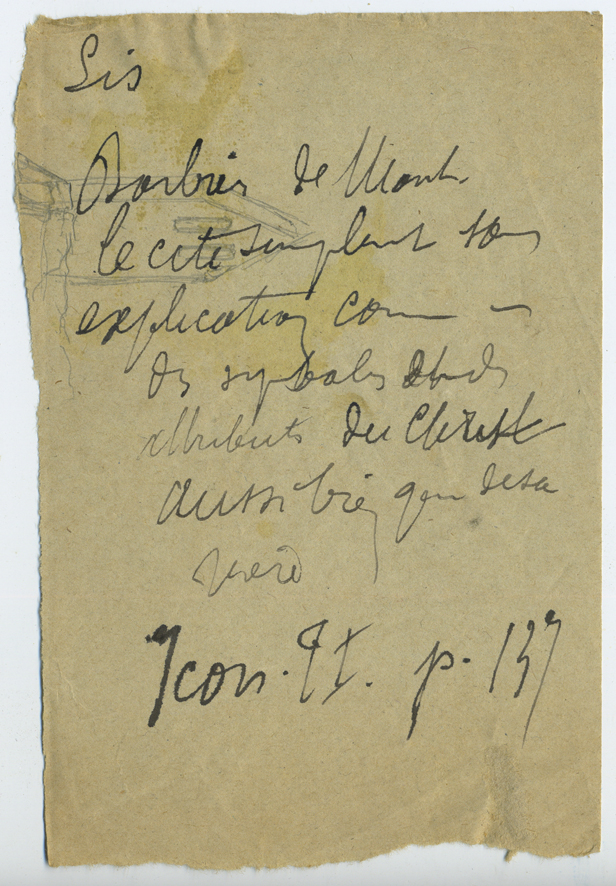 Lis
Barbier de Mont.
le cite simplement sans
explication comme un
des symboles et des
attributs du Christ
aussi bien que de sa
mère
Icon. II. p. 137